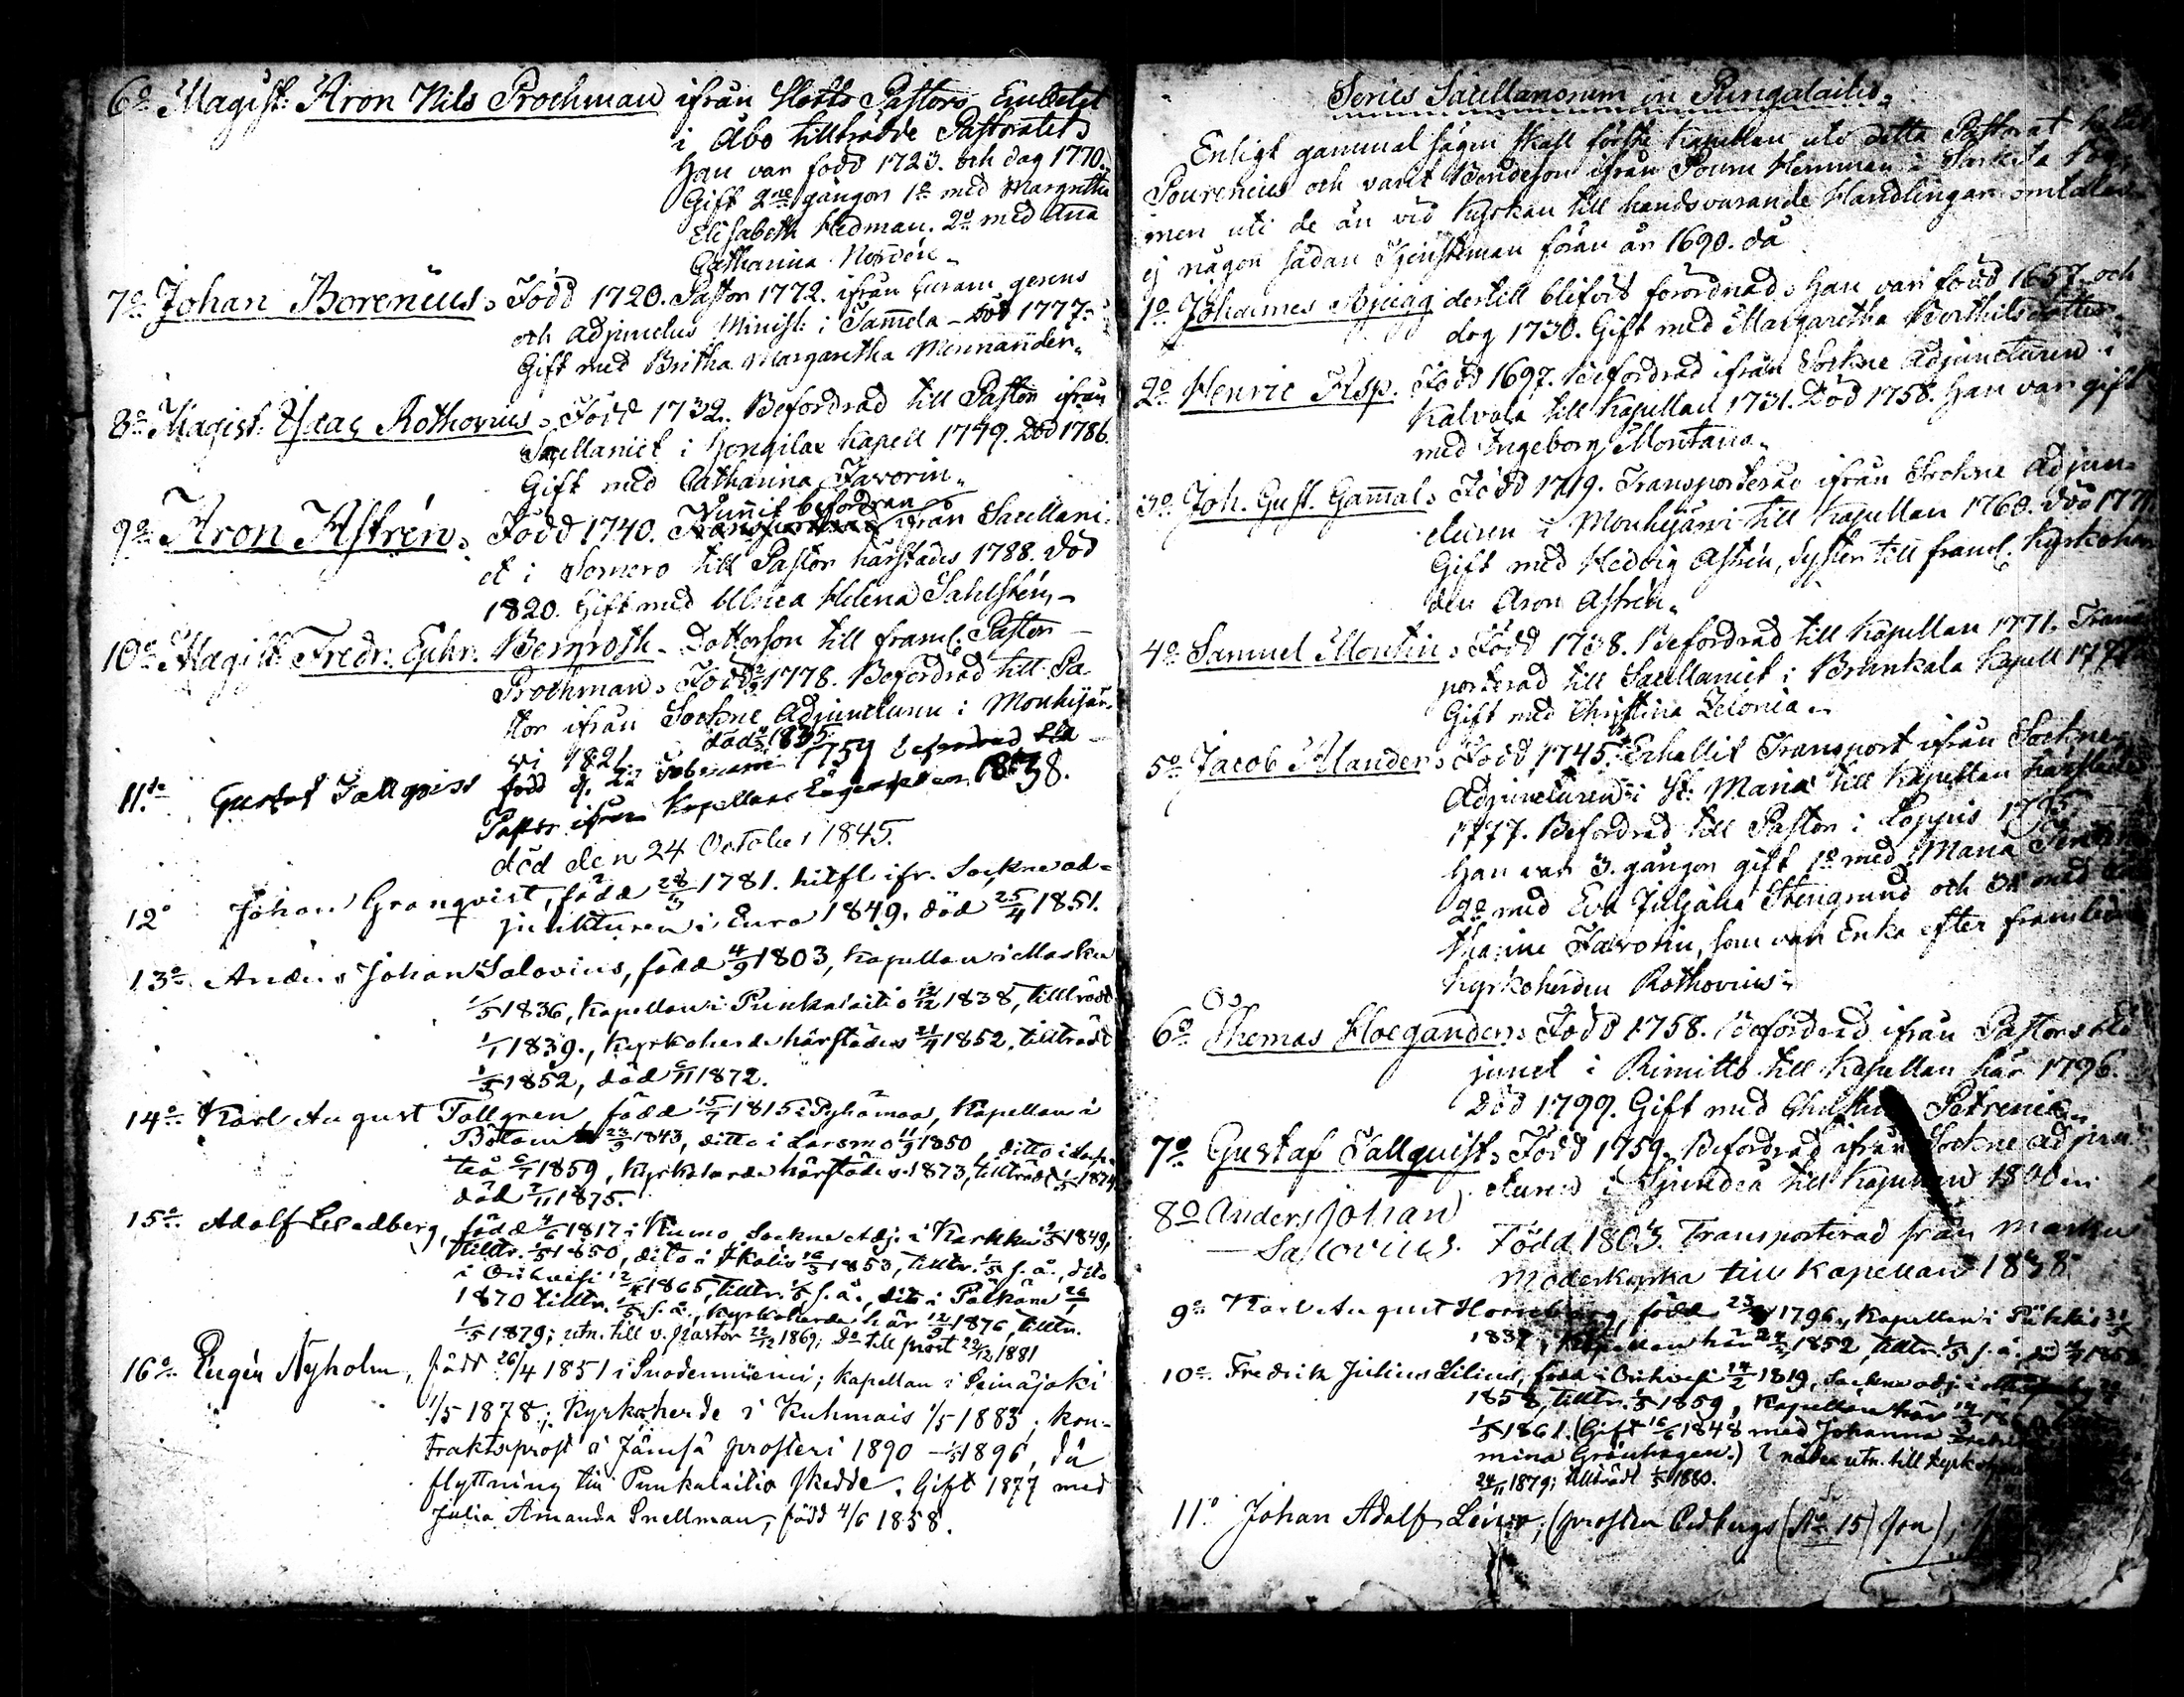 6o Magist: Aron Nils Prochman ifrån Slotts Pastors Embetet
i Åbo tillträdde Pastoratet.
Han var född 1723. och dog 1770.
Gift 2ne gångor 1o med Margretha
Elisabeth Hedman. 2o med Anna
Catharina Nordén.
7o Johan Borenius, Född 1720. Pastor 1772. ifrån curam gerens
och adjunctus Minist: i Sam̄ela - död 1777.
Gift med Britha Margaretha Mennander.
8o Magist. Isaac Rothovius, Född 1732. Befordrad till Pastor ifrån
Sacellaniet i Kapell 1779. Död 1786.
Gift med Catharina Favorin.
Vunnit befordran
9o Aron Astrén, Född 1740. ifrån Sacellani-
et i Somero till Pastor härstädes 1788. död
1820. Gift med Ulrica Helena Sahlstén,
10o Magist: Fredr. Ephr. Bergroth - Dotterson till framl. Pastor
Prochman, Född 1778. Befordrad till Pa-
stor ifrån Sockne Adjuncturen i Mouhijär-
vi 1821. död 1835.
11te Gustaf Tallqvist född d. 22 Februarii 1759 befordrad till
Pastor ifrån Kapellans 1838.
död den 24 October 1845.
12o Johan Granqvist, född 28/3 1781. hitfl. ifr. Socknead-
junkturen i Eura 1849, död 25/4 1851.
13o Anders Johan Salovius, född 4/9 1803, Kapellan i Masku
1/5 1836, Kapellan i Punkalaitio 12/12 1838, tillträdt
1/1 1839., Kyrkoherde härstädes 21/4 1852, tillträdt
1/5 1852, död 6/11 1872.
14o Karl August Tallgren, född 15/7 1815 i Pyhämaa, Kapellan i
Bötom 23/9 1843, ditto i Larsmo 11/9 1850, ditto i
teå 6/7 1859, Kyrkoherde härstädes 1873, tillträdt 1/5 1874
död 7/11 1875.
15o Adolf Cedberg, född 4/6 1817 i Kumo, Sockne Adj. i Karkku 9/5 1849,
tilltr. 1/5 1850, dito i Ikalis 16/3 1853, tilltr. 1/5 s. å., dito
i Orihvesi 12/4 1865, tilltr. 1/5 s. å., dito i Pälkäne 26/1
1870 tilltr. 1/5 s. å., Kyrkoherde här 12/9 1876, tilltr.
1/5 1879; utn. till v. pastor 22/12 1869; Do till prost 22/12 1881
16o Eugén Nyholm, född 26/4 1851 i Suodenniemi; kapellan i Seinäjoki
1/5 1878; Kyrkoherde i Kuhmois 1/5 1883; kon-
traktsprost i Jämsä prosteri 1890 - 1/5 1896, då
flyttning till Punkalaitio skedde. Gift 1877 med
Julia Amanda Snellman, född 4/6 1858.
Series Sacellanorum in Pungalaitio,
Enligt gammal sägen skall förste Kapellan uti detta Pastorat
Pourenius och varit Bondeson ifrån Pouru Hemman i
men uti de än vid Kyrkan till handsvarande Handlingar omtalas
ej någon sådan Tjensteman förän år 1690. då
1o Johannes dertill blifvit förordnad, Han var född 1657. och
dog 1730. Gift med Margaretha Berthilsdotter.
2o Henric Asp. Född 1697. Befordrad ifrån Sockne Adjuncturen i
Kalvola till Kapellan 1731. Död 1758. Han var gift
med Ingeborg Montana.
3o Joh. Gust. Gam̄al, Född 1719. Transporterad ifrån Sockne Adjun-
cturen i Mouhijärvi till Kapellan 1760. död 1771
Gift med Hedvig Astrén, Syster till framl. Kyrkoher
den Aron Astrén.
4o Samuel Montin, Född 1738. Befordrad till Kapellan 1771. Trans
porterad till Sacellaniet i Brunkala Kapell
Gift med Christina Zelonia.
5o Jacob Alander, Född 1745. Erhållit Transport ifrån Sockne
Adjuncturen i St. Marie till Kapellan härstädes
1777. Befordrad till Pastor i Loppis 1795
Han var 3. gångor gift 1o med Maria
2o med Eva Juliana Stengrund och 3o med
tharine Favorin, som var Enka efter framledne
Kyrkoherden Rothovius.
6o Thomas Hoeganden, Född 1758. Befordrad ifrån Pastors Ad
junct i Rimitto till Kapellan här 1796.
Död 1799. Gift med Petrenia
7o Gustaf Tallquist, Född 1759. Befordrad ifrån Sockne adjun
cturen i Sjundeå till Kapellan 1800
8o Anders Johan
Salovius. Född 1803. Transporterad från Masku
Moderkyrka till Kapellan 1838
9o Karl August Hornborg, född 1796, Kapellan i Pikkis
1837, Kapellan här 1852, tilltr. 1/5 s. å.
10o Fredrik Julius Lilius, född i Orihvesi 14/2 1819, Sockne adj. i
1858, tilltr. 1/5 1859, Kapellan här
1/5 1861. (Gift 16/6 1848 med Johanna
mina Grönhagen.) utn. till Kyrkoh
24/11 1879; tillträdt 1/5 1880.
11o Johan Adolf (prosten Cedbergs (No 15) son)